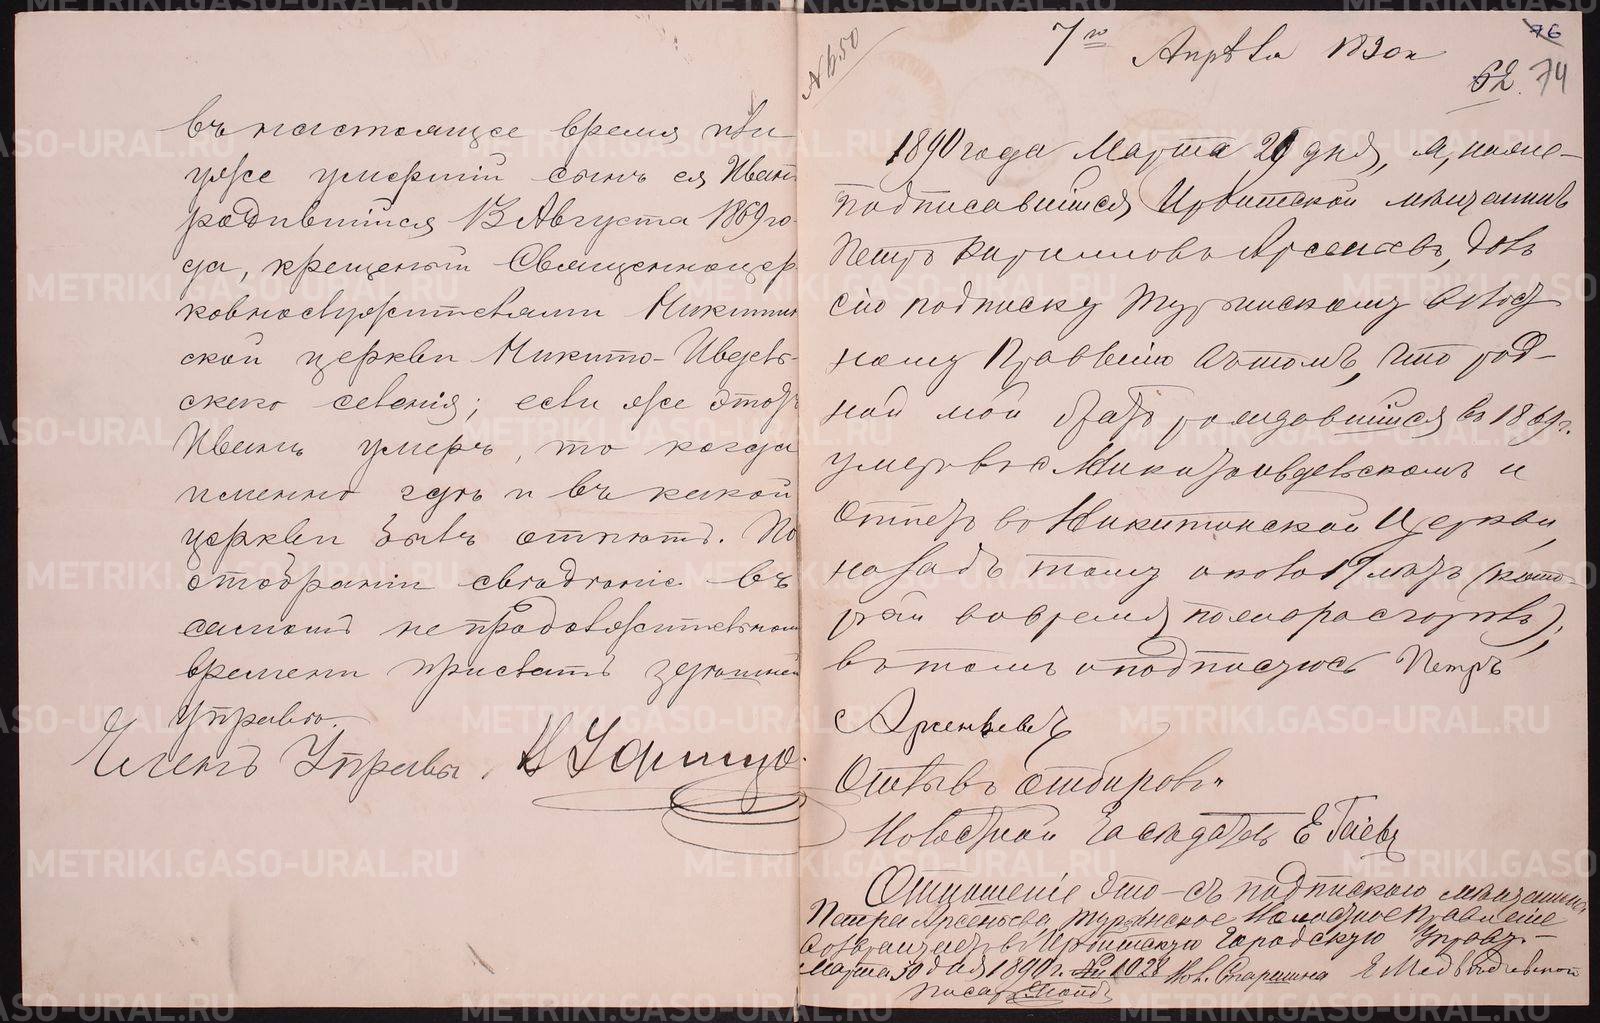 въ настоящее время или
уже умершiй сынъ ея Иванъ
родившiйся 13 Августа 1869 го-
да, крещеный Священноцер-
ковнослужителями Никитин
ской церкви Никито-Ивдель-
скаго селенiя; если же этотъ
Иванъ умеръ, то когда
именно гдѣ и въ какой
церкви былъ отпѣтъ. По
отобранiи свѣдѣнiе въ
самомъ непродолжительномъ
времени прислать здѣшней
Управѣ.
Членъ Управы
№ 650
7го Апрѣля 1890 г.
76
62. 74
1890 года Марта 26 дня, я, ниже-
подписавшiйся Ирбитской мещанинъ
Петръ Кириловъ Арсеньевъ, далъ
сiю подписку Туринскому Волост
ному Правленiю въ томъ, что род-
ной мой братъ родившiйся въ 1869 г.
умеръ въ с. Никитоивдельскомъ и
отпетъ въ Никитинской Церкви,
назадъ тому около 19 летъ (кото-
рой во время пожара сгорелъ),
въ томъ и подписуюсь Петръ
Арсеньевъ
Отзывъ отбиралъ
Волостной Заседатель Е Гаевъ
Отношенiе это съ подпискою мещанина
Петра Арсеньева, Туринское Волостное Правленiе
возвращаетъ въ Ирбитскую Городскую Управу.
Марта 30 дня 1890 г. № 1028 Вол. Старшина Е Медвѣдевской
Писарь